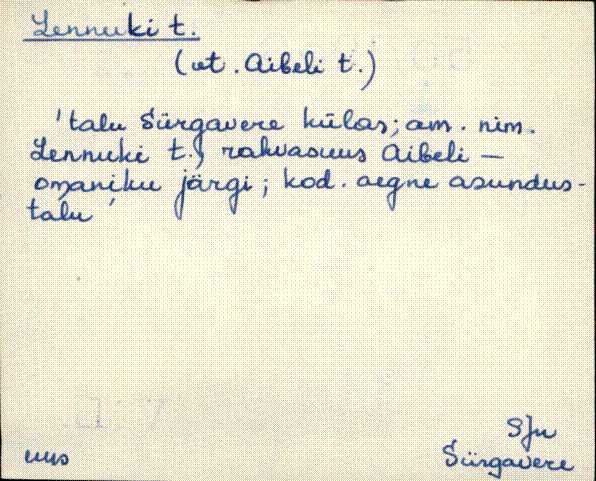 Lennuki t.
(vt. Aibeli t.)
'talu Sürgavere külas; am. nim.
Lennuki t., rahvasuus Aibeli —
omaniku järgi; kod. aegne asundus-
talu'
SJn
uus
Sürgavere